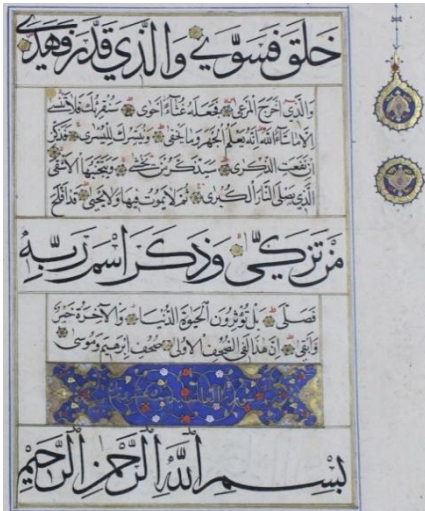 خَلَقَ فَسَوَّىٰ وَالَّذِي قَدَّرَ فَهَدَىٰ
وَالَّذِي أَخْرَجَ الْمَرْعَىٰ فَجَعَلَهُ غُثَاءً أَحْوَىٰ سَنُقْرِئُكَ فَلَا تَنْسَىٰ
إِلَّا مَا شَاءَ اللَّهُ إِنَّهُ يَعْلَمُ الْجَهْرَ وَمَا يَخْفَىٰ وَنُيَسِّرُكَ لِلْيُسْرَىٰ فَذَكِّرْ
إِنْ نَفَعَتِ الذِّكْرَىٰ سَيَذَّكَّرُ مَنْ يَخْشَىٰ وَيَتَجَنَّبُهَا الْأَشْقَى
الَّذِي يَصْلَى النَّارَ الْكُبْرَىٰ ثُمَّ لَا يَمُوتُ فِيهَا وَلَا يَحْيَىٰ قَدْ أَفْلَحَ
مَنْ تَزَكَّىٰ وَذَكَرَ اسْمَ رَبِّهِ
فَصَلَّىٰ بَلْ تُؤْثِرُونَ الْحَيٰوةَ الدُّنْيَا وَالْآخِرَةُ خَيْرٌ
وَأَبْقَىٰ إِنَّ هَٰذَا لَفِي الصُّحُفِ الْأُولَىٰ صُحُفِ إِبْرَٰهِيمَ وَمُوسَىٰ
بِسْمِ اللَّهِ الرَّحْمَٰنِ الرَّحِيمِ